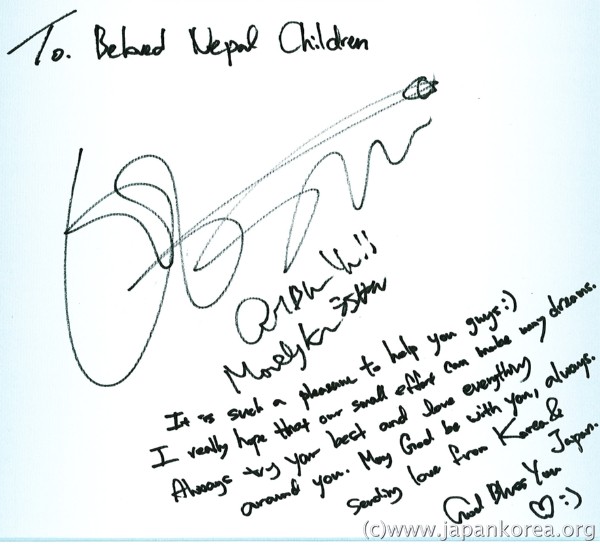 To. Beloved Nepal Children
God Bless You!!
It is such a pleasure to help you guys:)
I really hope that our small effort can make way dreams.
Always try your best and love everything
around you. May God be with you, always.
Sending love from Korea &
Japan.
God Bless You
♡:)
(c)www.japankorea.org